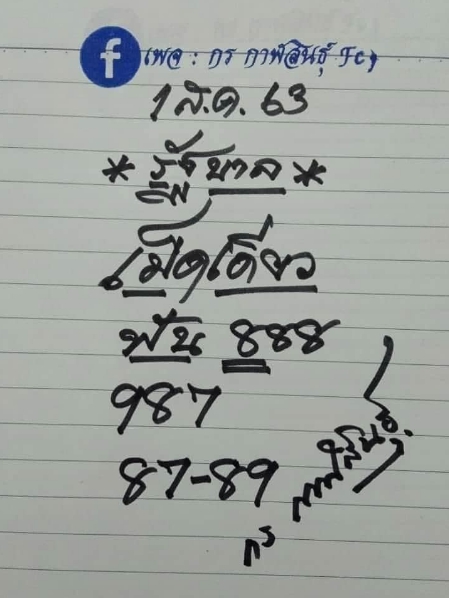 f เพจ : กร กาฬสินธุ์ Fc,
1 ส.ค. 63
* รัฐบาล *
เม็ดเดียว
ฟัน 888
987
87-89
กร กาฬสินธุ์